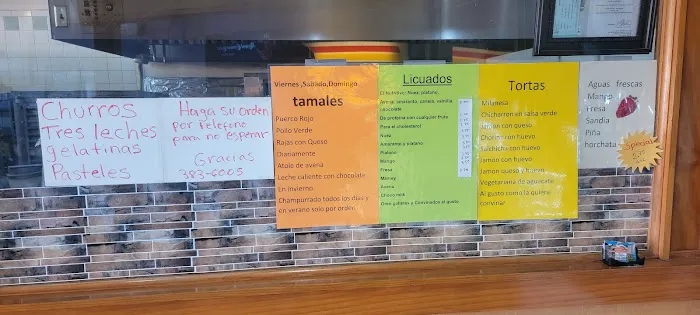 Churros
Tres leches
gelatinas
Pasteles
Haga su orden
por telefono
para no esperar
Gracias
383-6005
Viernes ,Sabado,Domingo
tamales
Puerco Rojo
Pollo Verde
Rajas con Queso
Diariamente
Atole de avena
Leche caliente con chocolate
En invierno
Champurrado todos los dias y
en verano solo por orden
Licuados
El Nutritivo: Nuez, platano,
Arroz, amaranto, canela, vainilla,
chocolate
De proteina con cualquier fruta
Para el colesterol
Nuez
Amaranto y platano
Platano
Mango
Fresa
Mamey
Avena
Choco milk
Tortas
Milanesa
Chicharron en salsa verde
Jamon con queso
Chorizo con huevo
Salchicha con huevo
Jamon con huevo
Jamon queso y huevo
Vegetariana de aguacate
Al gusto como la quiera
convinar
Aguas frescas
Mango
Fresa
Sandia
Piña
horchata
Special